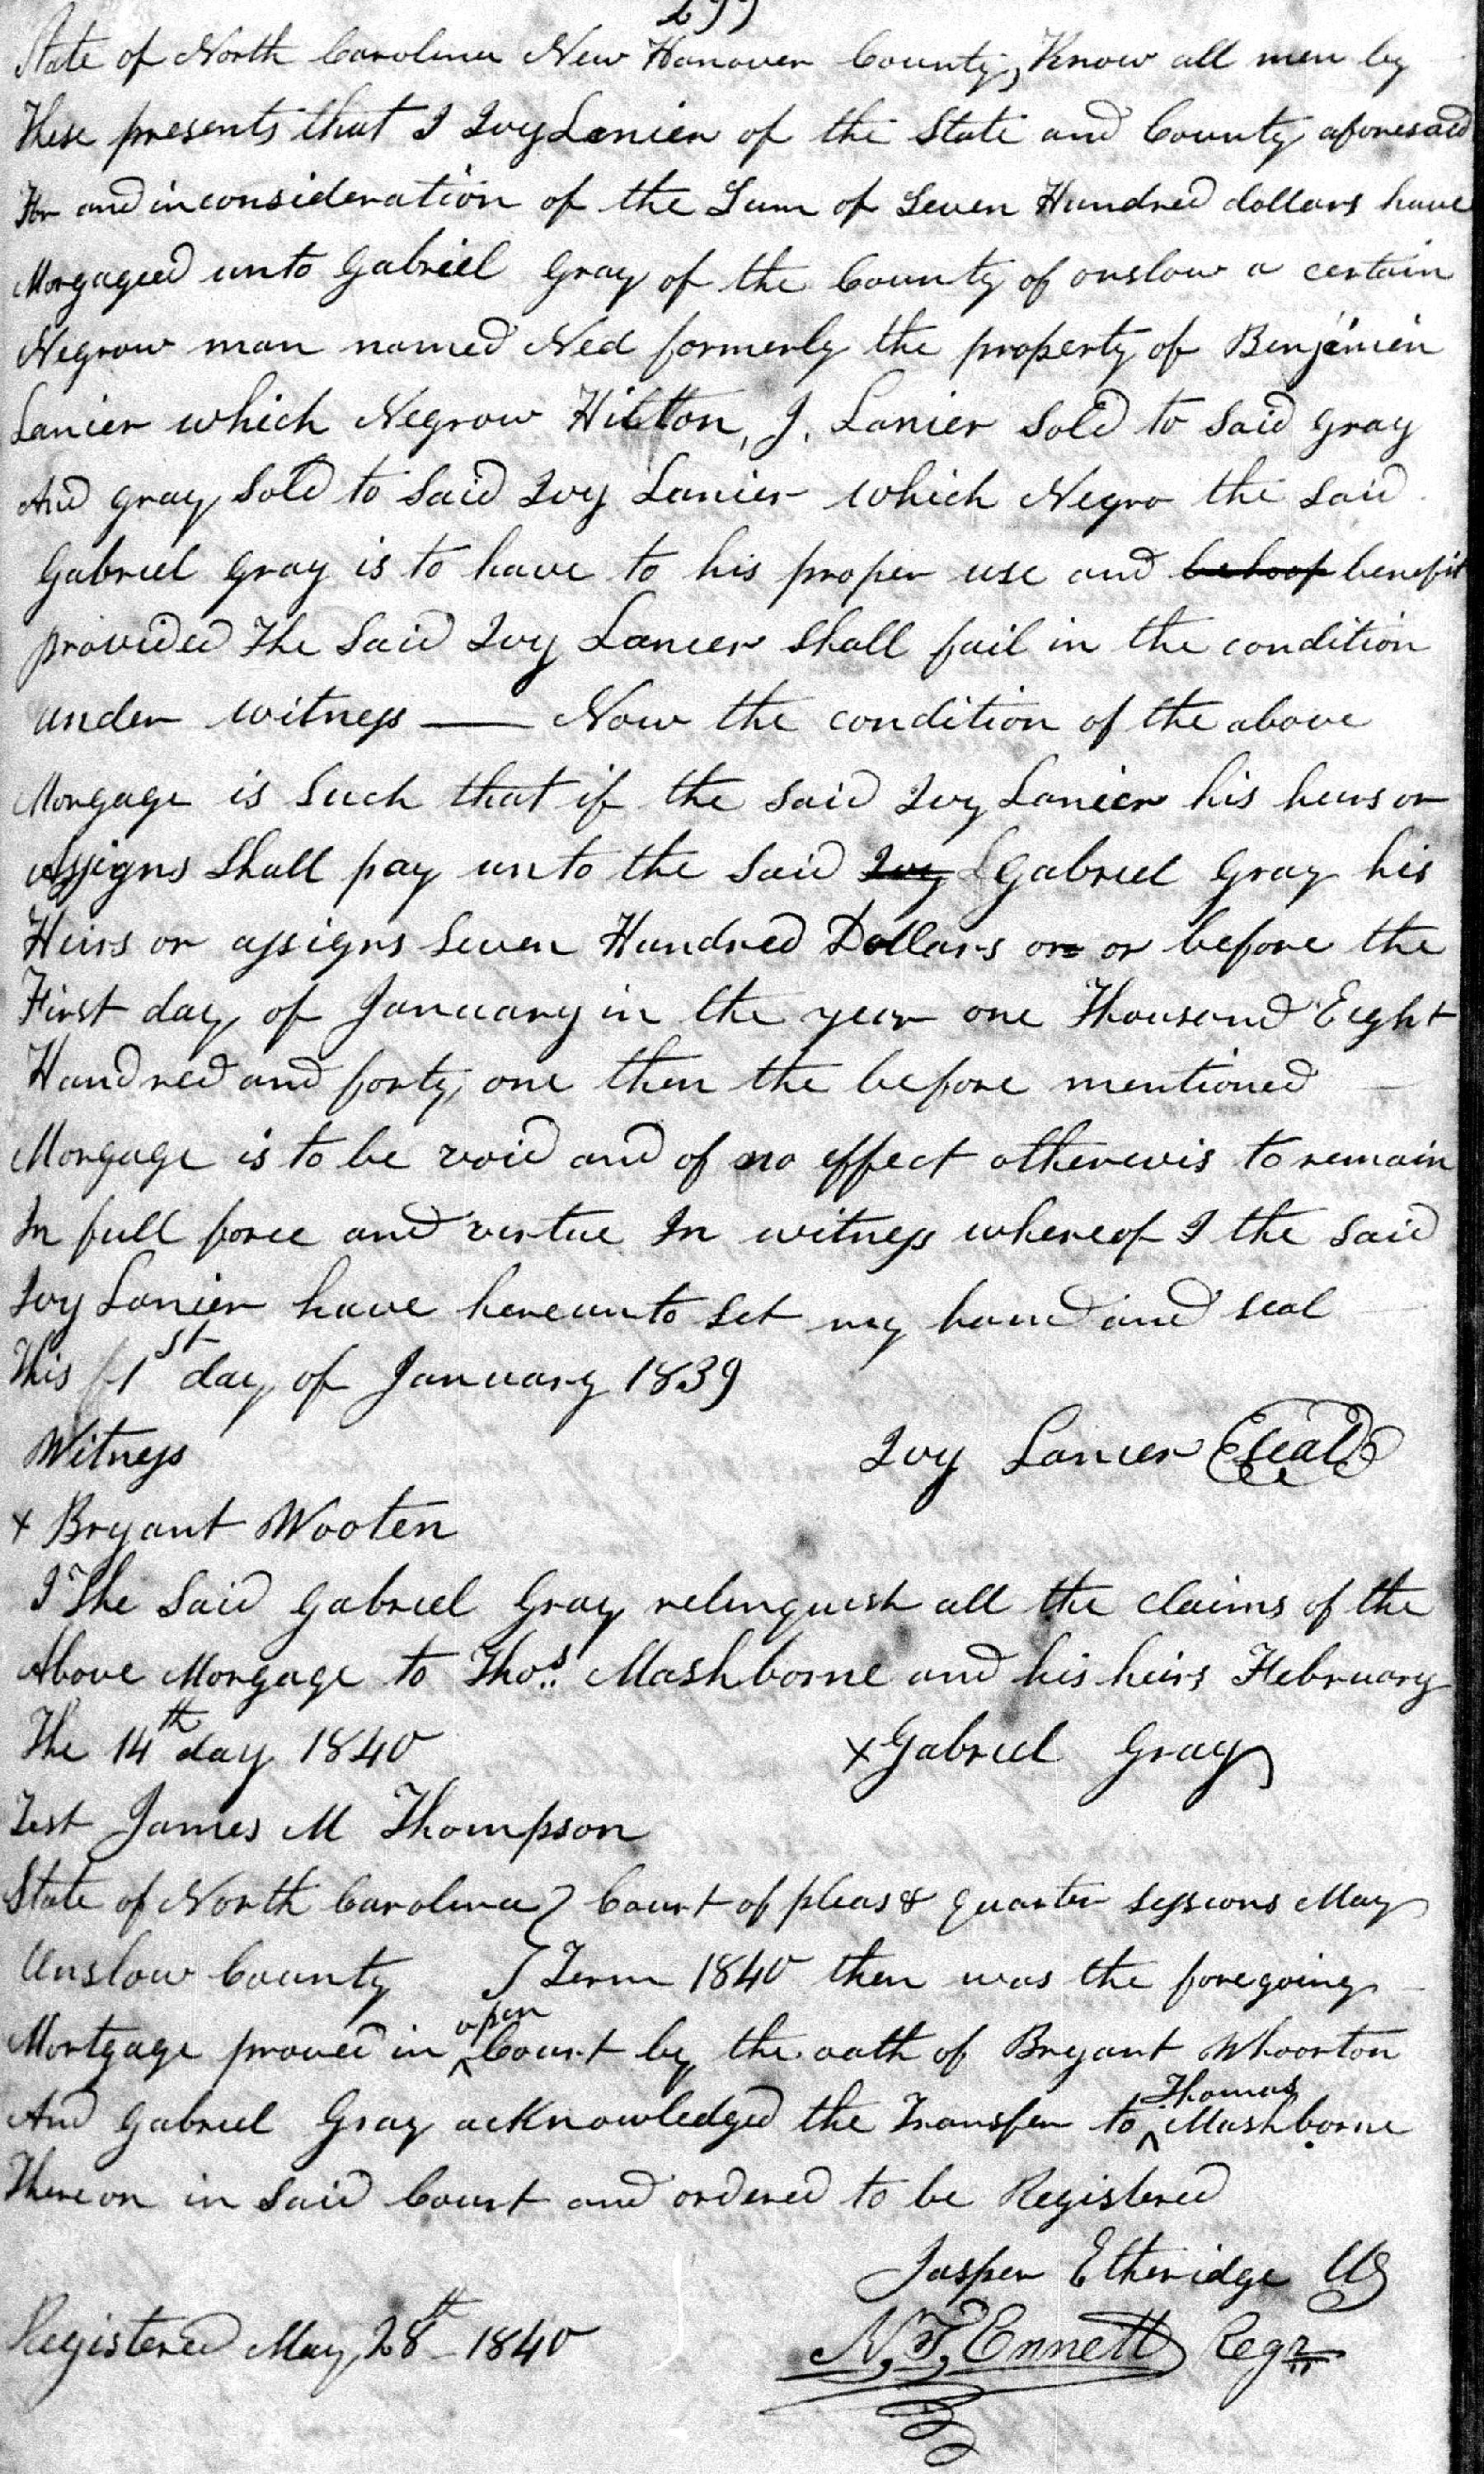 299
State of North Carolina New Hanover County, Know all men by
These presents that I Ivy Lanier of the State and County aforesaid
For and in consideration of the Sum of Seven Hundred dollars have
Morgaged unto Gabriel Gray of the County of onslow a certain
Negrow man named Ned formerly the property of Benjimien
Lanier which Negrow Hilton, J. Lanier Sold to Said Gray
And Gray Sold to Said Ivy Lanier which Negro the Said
Gabriel Gray is to have to his proper use and behoof benefit
provided The Said Ivy Lanier Shall fail in the condition
under witness — Now the condition of the above
Morgage is Such that if the Said Ivy Lanier his heirs or
Assigns Shall pay unto the Said Ivy L Gabriel Gray his
Heirs or assigns Seven Hundred Dollars on or before the
First day of January in the year one Thousand Eight
Handred and forty one then the before mentioned
Morgage is to be void and of no effect otherewis to remain
In full force and virtue In witness whereof I the Said
Ivy Lanier have hereunto Set my hand and seal
This 1st day of January 1839
Witness Ivy Lanier Seal
x Bryant Wooten
I The Said Gabriel Gray relinquish all the claims of the
Above Morgage to Thos. Mashborne and his heirs February
The 14th day 1840 x Gabriel Gray
Test James M Thompson
State of North Carolina } Court of pleas & quarter Sessions May
Onslow County } Term 1840 then was the foregoing
Mortgage proved in ^open Court by the oath of Bryant Whoorton
And Gabriel Gray acknowledged the Transfer to ^Thomas Mashborne
Thereon in Said Court and ordered to be Registered
Jasper Etheridge Clk
Registered May 28th 1840 N. T. Ennett Regr